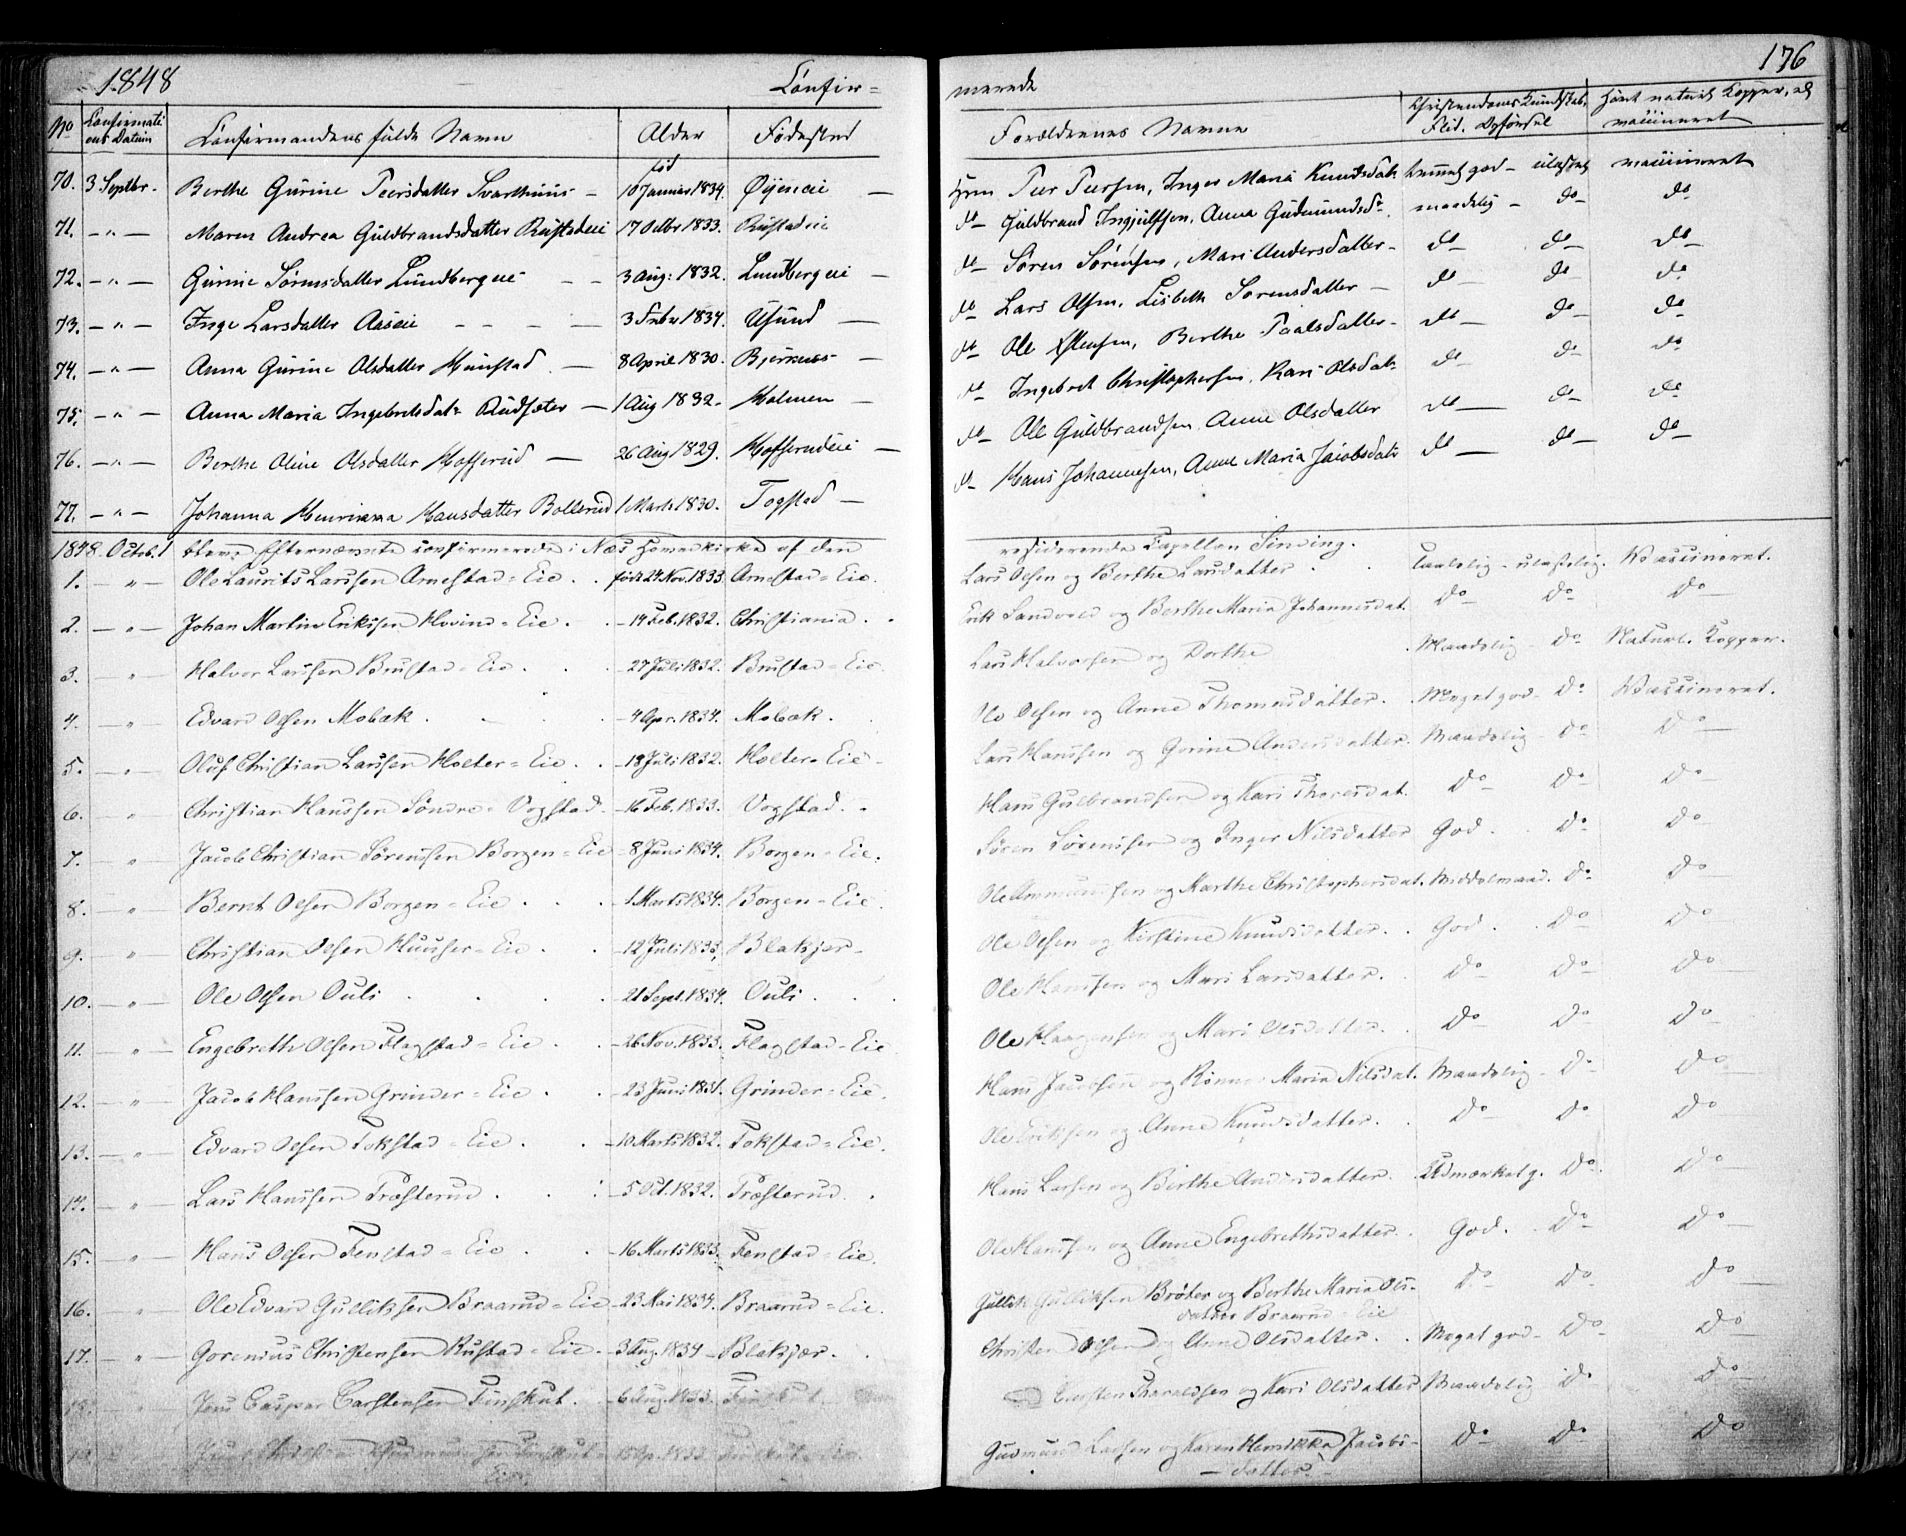 1848 Confir= merede 176
No Confirmationens Datum Confirmandens fulde Navn Alder Fødested Forældrenes Navne Christendoms Kundskab, Flid. Opførsel havt naturl. Kopper, el vaccineret
70. 3 Septbr. Berthe Gurine Peersdatter Svarthuus - fød 10 Januar 1834. Øieneie - Peer Peersen, Inger Maria Knudsdatr meget god - ulastel vaccineret
71. - " - Maren Andrea Guldbrandsdatter Rustadeie 17 Octbr 1833. Rustadeie do Guldbrand Ingjulfsen, Anna Gudmundsdr maadelig - do - do
72. - " - Gurine Sørensdatter Lundbergeie - - 3 Aug: 1832. Lundbergeie - do Søren Sørensen, Mari Andersdatter - do - do - do -
73. - " - Inge Larsdatter Aaseie - - - - 3 Febr 1834. Usund - do Lars Olsen, Lisbeth Sørensdatter - do - do - do
74. - " - Anna Gurine Olsdatter Huustad - 8 April 1830. Bjerknes - do Ole Paalsdatter - do - do - do
75. - " - Anna Maria Ingebretsdatr Rudsæter - 1 Aug 1832. Holmen - do Ingebret Christophersen, Kari Olsdatr do do - do
76. - " - Berthe Oline Olsdatter Hofferud - 26 Aug 1829. Hofferudeie - do - Ole Guldbrandsen, Anne Olsdatter do - do - do
77. - " - Johanna Henrikka Hansdatter Bollerud 1 Marts 1830. Togstad - do - Hans Johannesen, Anne Maria Jacobsdatr do - do - do -
1848. Octob. 1 bleve Efternævnte confirmerede i Næs Hovedkirke af den residerende Capellan Sinding.
1. - " - Ole Laurits Larssen Arnestad=Eie. . født 24 Nov. 1833. Arnestad=Eie. Lars Olsen og Berthe Larsdatter . . Taalelig - ulastelig. Vaccineret.
2. - " - Johan Martin Erikssen Hovind=Eie. . - 19 Feb. 1832. Christiania. . Erik Sandvold og Berthe Maria Johannesdat. Do - Do - Do -
3. - " - Halvor Larssen Brustad=Eie. . . - 27 Juli 1832. Brustad=Eie. Lars Halvorsen og Dorthe . Maadelig - Do - Naturl. Kopper.
4. - " - Edvard Olsen Mobæk . - . - 4 Apr. 1834. Mobæk. . Ole Olsen og Anne Thomasdatter. . Meget god - Do Vaccineret.
5. - " - Oluf Christian Larssen Holter=Eie. . - 18 Juli 1832. Holter=Eie - Lars Hanssen og Gorine Andersdatter. Maadelig - Do - Do -
6. - " - Christian Hanssen Søndre=Vogstad. - 16 Feb. 1833. Vogstad. . Hans Gulbrandsen og Kari Thoresdat. Do - Do - Do -
7. - " - Jacob Christian Sørenssen Borgen=Eie - 8 Juni 1834. Borgen=Eie. Søren Sørenssen og Inger Nilsdatter God . . Do - Do -
8. - " - Bernt Olsen Borgen=Eie . . . - 1 Marts 1834. Borgen=Eie. Ole Ammundsen og Marthe Christophersdat. Middelmaad. Do - Do
9. - " - Christian Olsen Huuser=Eie . . - 12 Juli 1833. Blakjer - Ole Olsen og Kirstine Knudsdatter. . God . . Do - Do -
10. - " - Ole Olsen Ouli . . . . 21 Sept. 1834. Ouli . . . Ole Hanssen og Mari Larsdatter. . Do - Do - Do -
11. - " - Engebreth Olsen Flagstad=Eie . . - 26 Nov. 1833. Flagstad=Eie Ole Haagensen og Mari Olsdatter. . Do - Do - Do -
12. - " - Jacob Hanssen Grinder=Eie . . - 23 Juni 1831. Grinder=Eie. Hans Jacobsen og Rønne Maria Nilsdat. Maadelig - Do - Do -
13. - " - Edvard Olsen Tokstad=Eie. . . - 10 Marts 1832. Tokstad=Eie. Ole Eriksen og Anne Knudsdatter. . Do - Do - Do -
14. - " - Lars Hanssen Træsterud. . . . - 5 Oct. 1832. Træsterud. . Hans Larsen og Berthe Andersdatter. . Udmærket g. Do. Do -
15. - " - Hans Olsen Fenstad=Eie . . - 16 Marts 1833. Fenstad=Eie. Ole Hanssen og Anne Engebrethsdatter. . God. . Do - Do -
16. - " - Ole Edvard Gulliksen Braarud=Eie - 23 Mai 1834. Braarud=Eie. Gullik Gulliksen Brøter og Berthe Maria Ols- Do - Do - Do -
datter Braarud=Eie
17. - " - Gorenius Christensen Rustad=Eie. - 3 Aug. 1834 - Blakjer. . Christen Olsen og Anne Olsdatter. . Meget god - Do - Do -
18. " Jens Casper Carstensen Finskut. . - 6 Aug. 1833. Finskut. Carsten Tharaldsen og Kari Olsdatter Maadelig Do - Do -
19. Gudmundsen Finskut= - 15 Ap. 1833. Finskut=Eie. Gudmund Larsen og Karen Henrikka Jacobs- Do - Do - Do
Eie. - datter. -